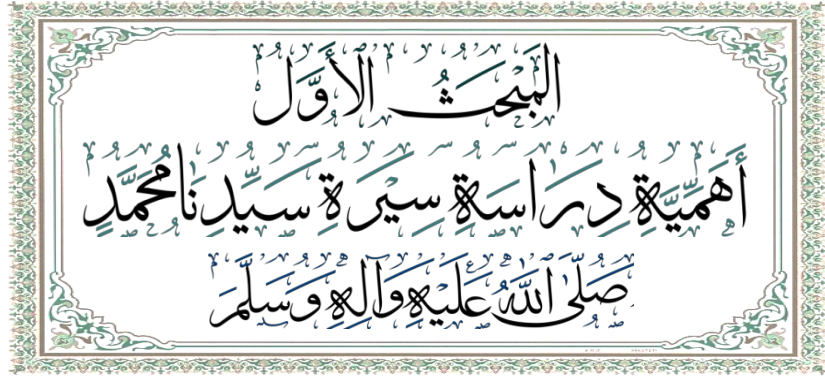 المَبْحَثُ الْأَوَّلُ
أَهَمِّيَّةِ دِرَاسَةِ سِيْرَةِ سَيِّدِنَا مُحَمَّدٍ
صَلَّى اللهُ عَلَيْهِ وَآلِهِ وَسَلَّمَ